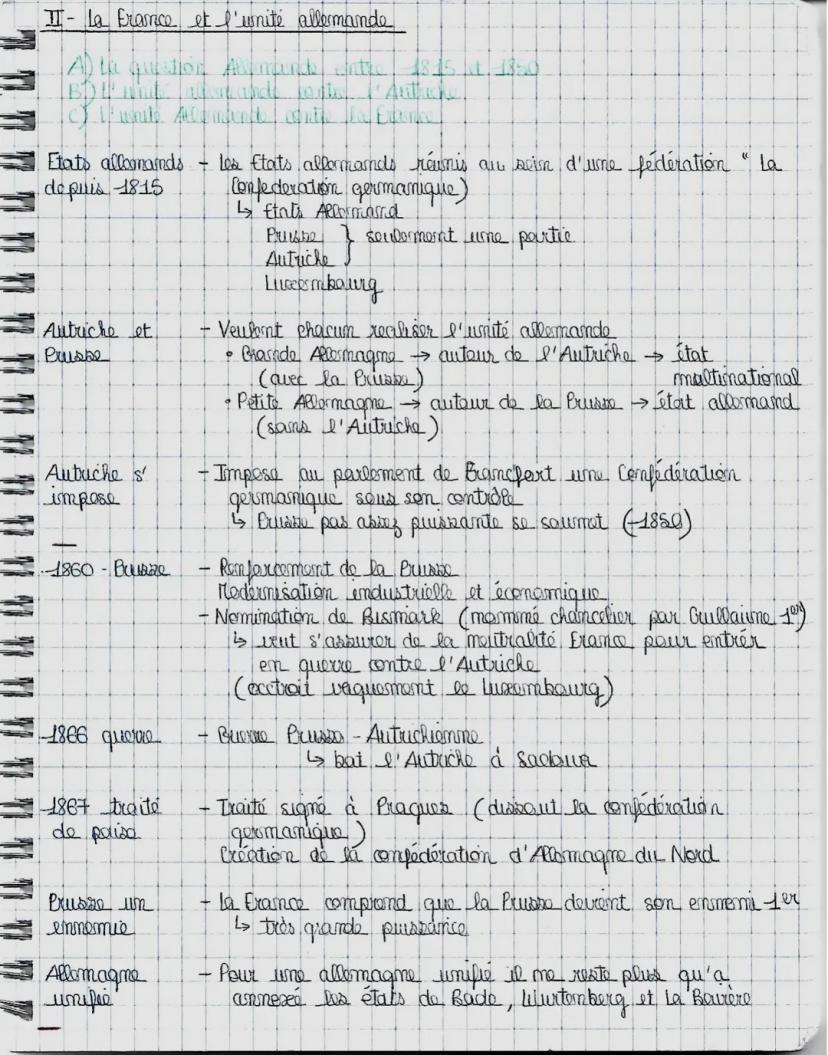 II - La France et l'unité allemande
A) La question Allemande entre 1815 et 1850
B) L'unité allemande contre l'Autriche
C) L'unité Allemande contre la France
Etats allemands - Les Etats allemands réunis au sein d'une fédération " La
depuis 1815 Confederation germanique)
↳ Etats Allemand
Prusse } seulement une partie
Autriche
Luxembourg
Autriche et - Veulent chacun realiser l'unité allemande
Prusse • Grande Allemagne → autour de l'Autriche → état
(avec la Prusse) multinational
• Petite Allemagne → autour de la Prusse → état allemand
(sans l'Autriche)
Autriche s' - Impose au parlement de Francfort une Confédération
impose germanique sous son contrôle
↳ Prusse pas assez puissante se soumet (1850)
1860 - Prusse - Renforcement de la Prusse
Modernisation industrielle et économique
- Nomination de Bismark (nommé chancelier par Guillaume 1er)
↳ veut s'assurer de la neutralité France pour entrér
en guerre contre l'Autriche
(octroit vaguement le Luxembourg)
1866 guerre - Guerre Prusso - Autrichienne
↳ bat l'Autriche à Sadowa
1867 traité - Traité signé à Pragues (dissout la confédération
de paix germanique)
Création de la confédération d'Allemagne du Nord
Prusse un - La France comprend que la Prusse devient son ennemi 1er
ennemie ↳ très grande puissance
Allemagne - Pour une allemagne unifié il ne reste plus qu'a
unifié annexé les états de Bade, Wurtemberg et La Bavière